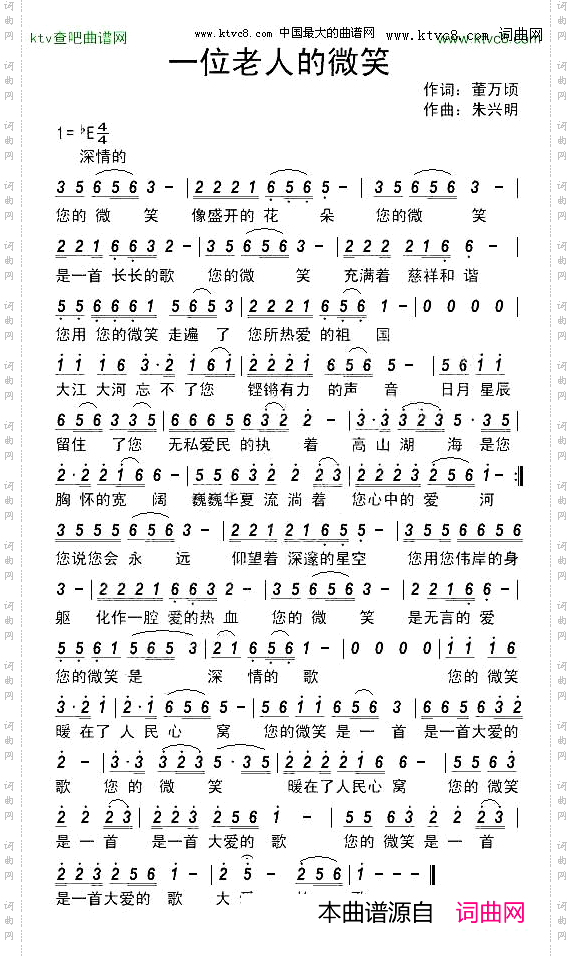 www.ktvc8.com 中国最大的曲谱网
www.ktvc8.com 词曲网
www.ktvc8.com
ktv查吧曲谱网
一位老人的微笑
作词: 董万顷
作曲: 朱兴明
1=♭E 4/4
深情的
3 5 6 5 6 3 - | 2 2 2 1 6 5 6 5 - | 3 5 6 5 6 3 - |
您的 微 笑 像盛开的 花 朵 您的 微 笑
2 2 1 6 6 3 2 - | 3 5 6 5 6 3 - | 2 2 2 2 1 6 6 - |
是一首 长长的歌 您的微 笑 充满着 慈祥和 谐
5 5 6 6 6 1 5 6 5 3 | 2 2 2 2 1 6 5 6 1 - | 0 0 0 0 |
您用 您的微笑 走遍 了 您所热爱 的祖 国
1 1 1 6 3·2 1 6 1 | 2 2 2 1 6 5 6 5 - | 5 6 1 1
大江 大河 忘 不 了您 铿锵有力 的声 音 日月 星辰
6 5 6 3 3 5 | 6 6 6 5 6 3 2 2 - | 3·3 3 2 3 5·3 5 |
留住 了您 无私爱民 的执 着 高 山 湖 海 是您
2·2 2 1 6 6 - | 5 5 6 3 2 2 2 3 | 2 2 2 3 2 5 6 1 - :‖
胸 怀的宽 阔 巍巍华夏 流 淌着 您心中的 爱 河
3 5 5 5 6 5 6 - | 2 2 1 6 1 5 6 5 | 3 5 5 6 5 6
您说您会 永 远 仰望着 深邃的星空 您用您伟岸的身
3 - | 2 2 2 1 6 6 3 2 - | 3 5 6 5 6 3 - | 2 2 1 6
躯 化作一腔 爱的热 血 您的 微 笑 是无言的 爱
5 5 6 5 5 6 5 3 | 2 1 6 5 6 1 - | 0 0 0 0 | 1 1 1 6
您的微笑 是 深 情的 歌 您的 微笑
3·2 1 | 2·1 6 5 6 5 - | 5 6 1 1 6 5 6 3 | 5 6 6 5 6 3
暖 在了 人 民 心 窝 您的微笑 是 一 首 是一大爱的
2 - | 3·3 3 2 3 5 - | 2·2 2 1 6 6 - | 5 5 6 3
歌 您 的 微 笑 暖在了人民心 窝 您的 微 笑
2 2 2 3 | 2 2 2 3 2 5 6 1 - | 5 5 6 3 2 2 2 3 |
是 一首 是一首 大爱的 歌 您的 微笑 是 一 首
2 2 2 3 2 5 6 1 - | 2 2 5 6 | 1 - - - ‖
是一首大爱的 歌 大
本曲谱源自 词曲网
词曲网